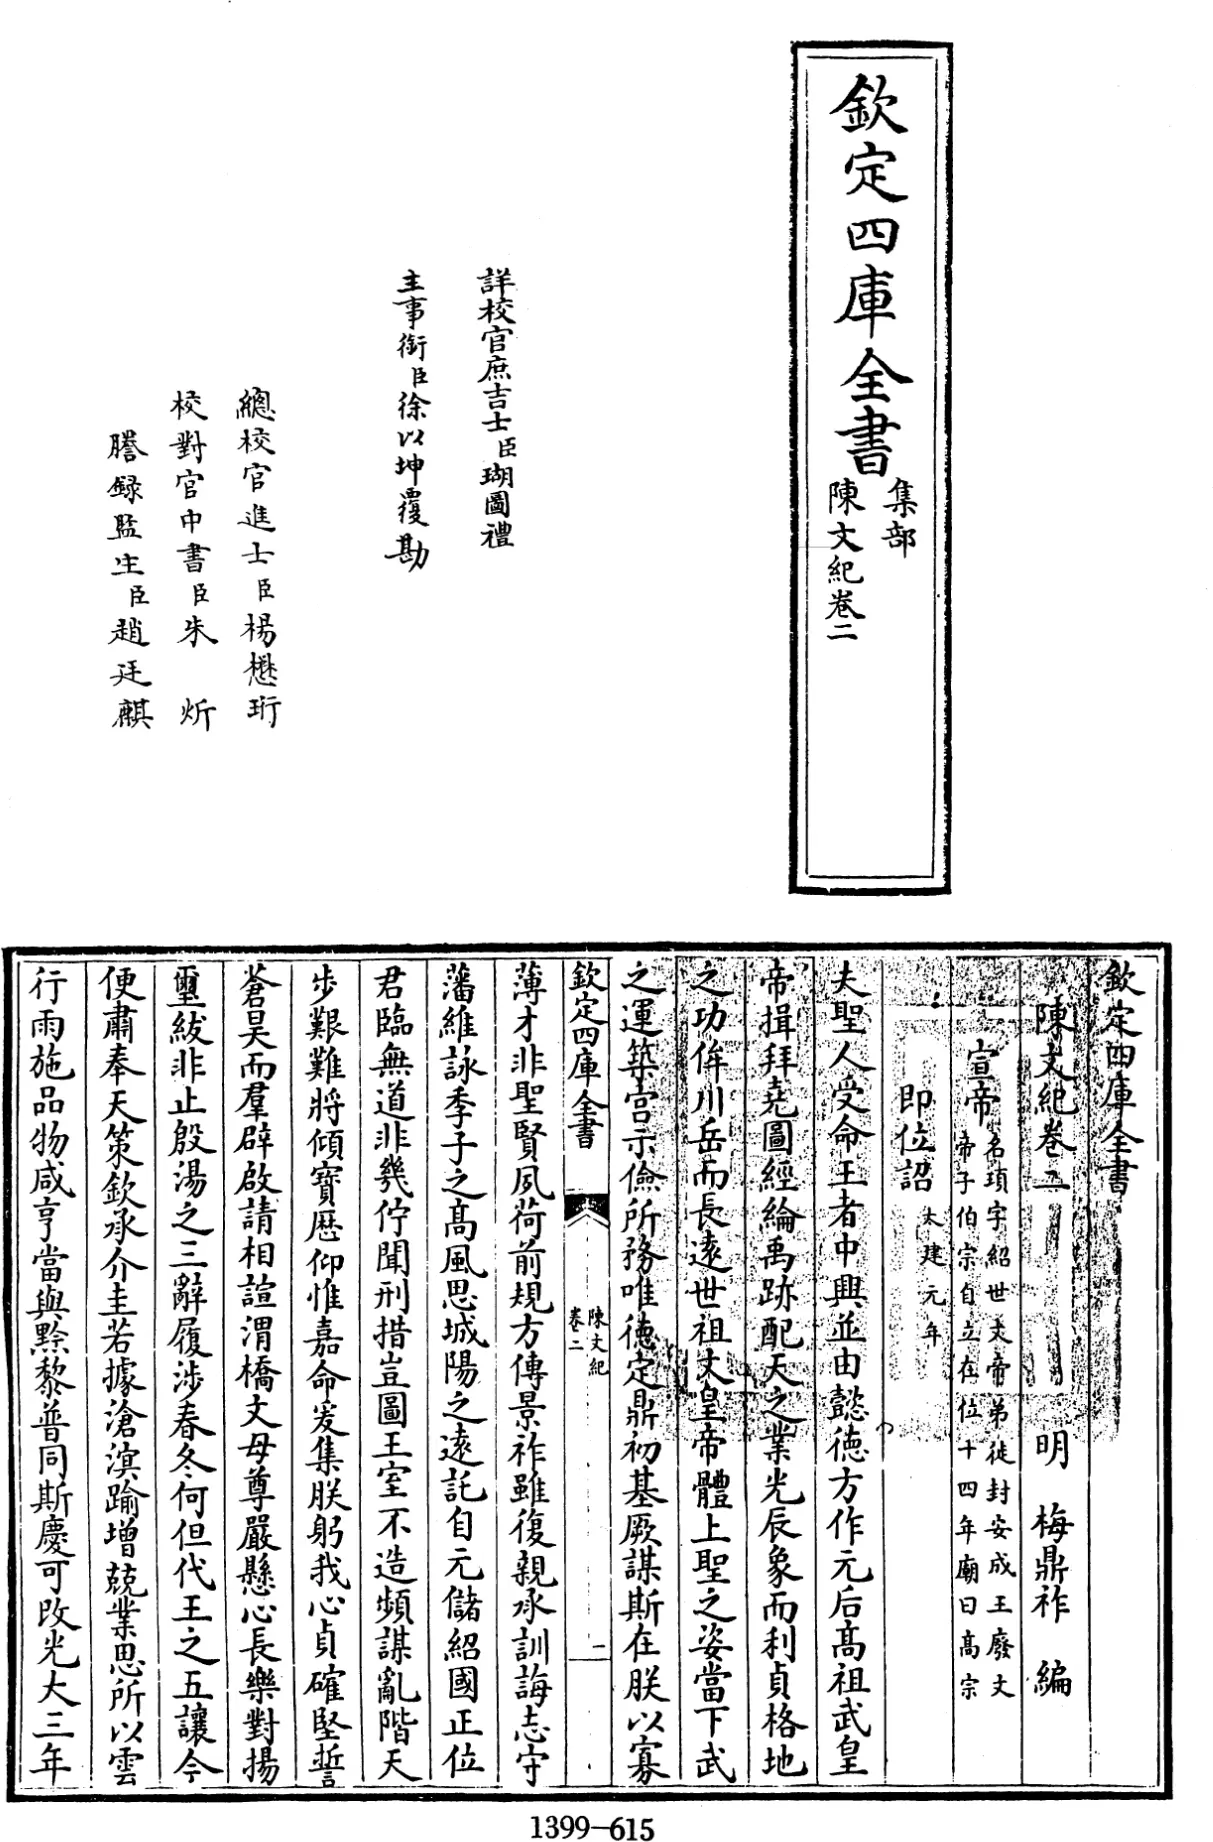 欽定四庫全書
集部
陳文紀卷二
詳校官庶吉士臣瑚圖禮
主事銜臣徐以坤覆勘
總校官進士臣楊懋珩
校對官中書臣朱炘
謄録監生臣趙廷麒
欽定四庫全書
陳文紀卷二 明 梅鼎祚 編
宣帝
名頊字紹世文帝弟徙封安成王廢文
帝子伯宗自立在位十四年廟曰高宗
即位詔
太建元年
夫聖人受命王者中興並由懿徳方作元后髙祖武皇
帝揖拜堯圖經綸禹跡配天之業光辰象而利貞格地
之功侔川岳而長遠世祖文皇帝體上聖之姿當下武
之運築宫示儉所務唯徳定鼎初基厥謀斯在朕以寡
欽定四庫全書
陳文紀
卷二
二
薄才非聖賢夙荷前規方傳景祚雖復親承訓誨志守
藩維詠季子之髙風思城陽之逺託自元儲紹國正位
君臨無道非幾佇聞刑措豈圖王室不造頻謀亂階天
步艱難將傾寶厯仰惟嘉命爰集朕躬我心貞確堅誓
蒼昊而羣辟啟請相諠渭橋文母尊嚴懸心長樂對揚
璽紱非止殷湯之三辭履涉春冬何但代王之五讓今
便肅奉天策欽承介圭若據滄溟踰增兢業思所以雲
行雨施品物咸亨當與黔黎普同斯慶可改光大三年
1399-615